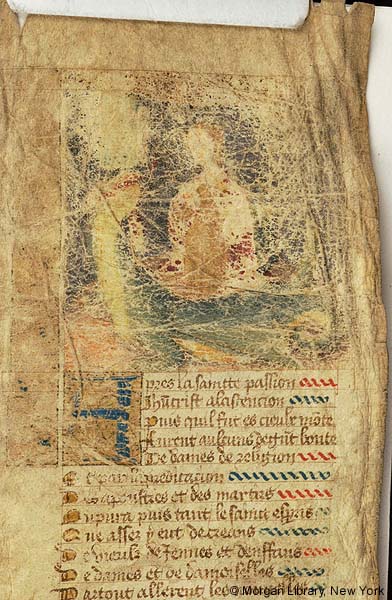 Apres la saincte passion
Jhūcrist alascencion
Puis quil fut es cieulx mōte
Furent aucuns de grāt bonte
De dames de religion
predicacion
apoustres et des martirs
ouura puis tant le saint esprit
Que assez y eut de creans
De vieulx de iennes et denffans
De dames et de damoiselles
Partout allerent les
© Morgan Library, New York